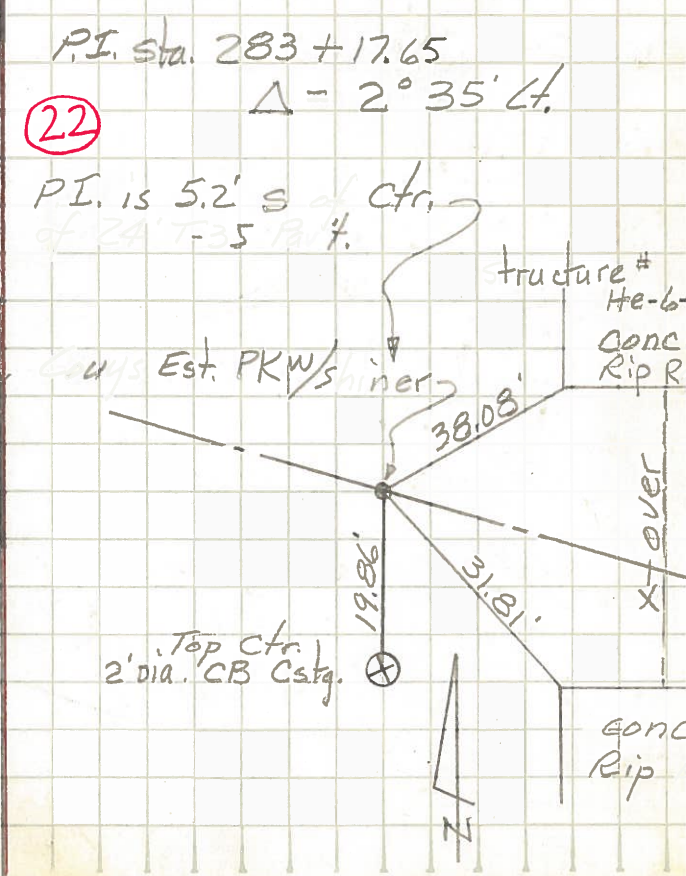 P.I. sta. 283 + 17.65
Δ - 2° 35' Lt.
22
P.I. is 5.2' s of Ctr.
of 24' T-35 t.
tructure #
He-6-
Conc
Rip R
Est. PK W/s hiner
38.08'
X-over
19.86'
31.81'
Top Ctr.
2' Dia. CB Cstg.
Conc
Rip
N